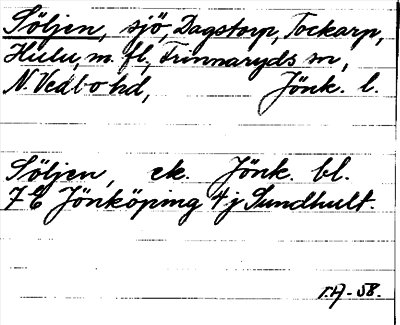 Söljen, sjö, Dagstorp, Tockarp,
Hulu, m. fl., Frinnaryds sn,
N. Vedbo hd, Jönk. l.
Söljen, ek. Jönk. bl.
7E Jönköping 4j Sundhult.
T.A-58.